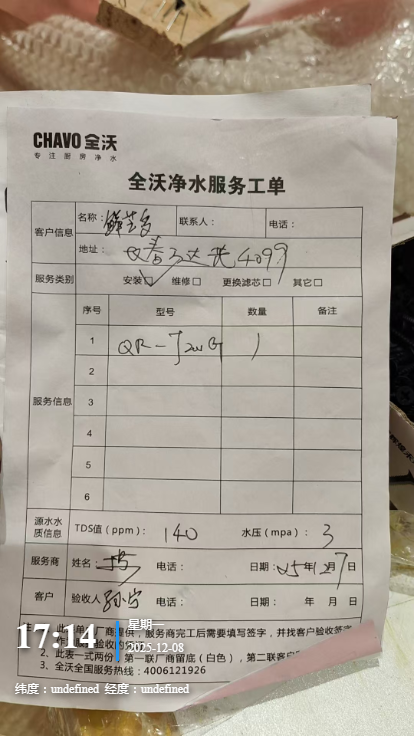 CHAVO 全沃
专 注 厨 房 净 水
全沃净水服务工单
客户信息 名称: 联系人: 电话:
地址: 万达 4099
服务类别 安装☑ 维修□ 更换滤芯□ 其它□
服务信息 序号 型号 数量 备注
1 QR-J2w 1
2
3
4
5
6
源水水质信息 TDS值(ppm): 140 水压(mpa): 3
服务商 姓名: 电话: 日期: 25年12月7日
客户 验收人 孙 电话: 日期: 年 月 日
2、此表一式两份,第一联厂商留底(白色),第二联客户
3、全沃全国服务热线:4006121926
17:14
星期一
2025-12-08
纬度:undefined 经度:undefined